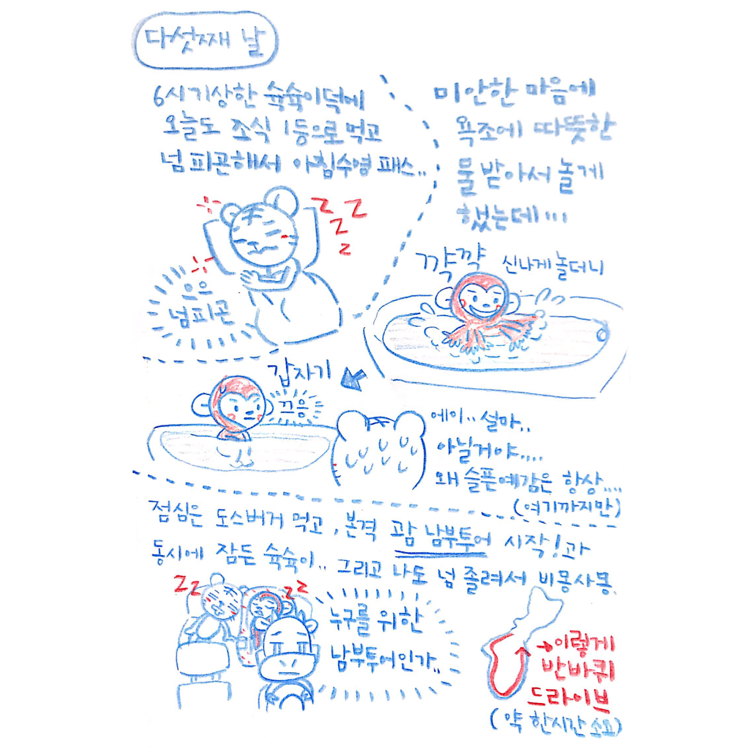 다섯째 날
6시기상한 슉슉이덕에
오늘도 조식 1등으로 먹고
넘 피곤해서 아침수영 패스..
z z z z
으으
넘피곤
미안한 마음에
욕조에 따뜻한
물 받아서 놀게
했는데...
꺅꺅 신나게 놀더니
갑자기
끄응
에이.. 설마..
아닐거야....
왜 슬픈예감은 항상....
(여기까지만)
점심은 도스버거 먹고, 본격 괌 남부투어 시작! 과
동시에 잠든 슉슉이.. 그리고 나도 넘 졸려서 비몽사몽.
zz zz
누구를 위한
남부투어인가..
→이렇게
반바퀴
드라이브
(약 한시간 소요)